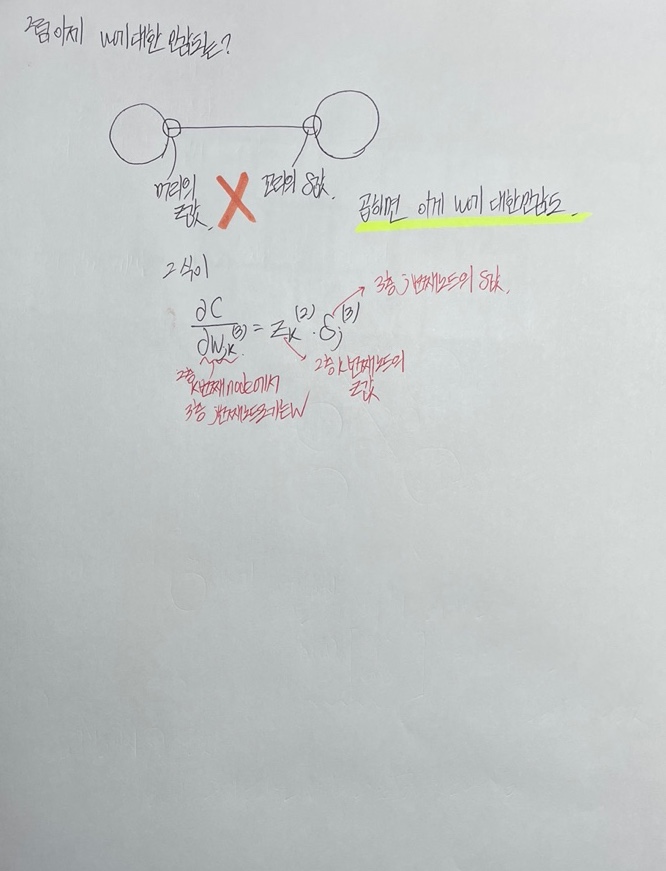 그럼 이제 w에 대한 민감도는?
머리의 z값.
꼬리의 δ값.
곱하면 이게 w에 대한 민감도.
그 식이
∂C/∂w_jk^(3) = z_k^(2) · δ_j^(3)
3층 j번째 노드의 δ값.
2층 k번째 노드의
z값
2층
k번째 node에서
3층 j번째 노드로 가는 w